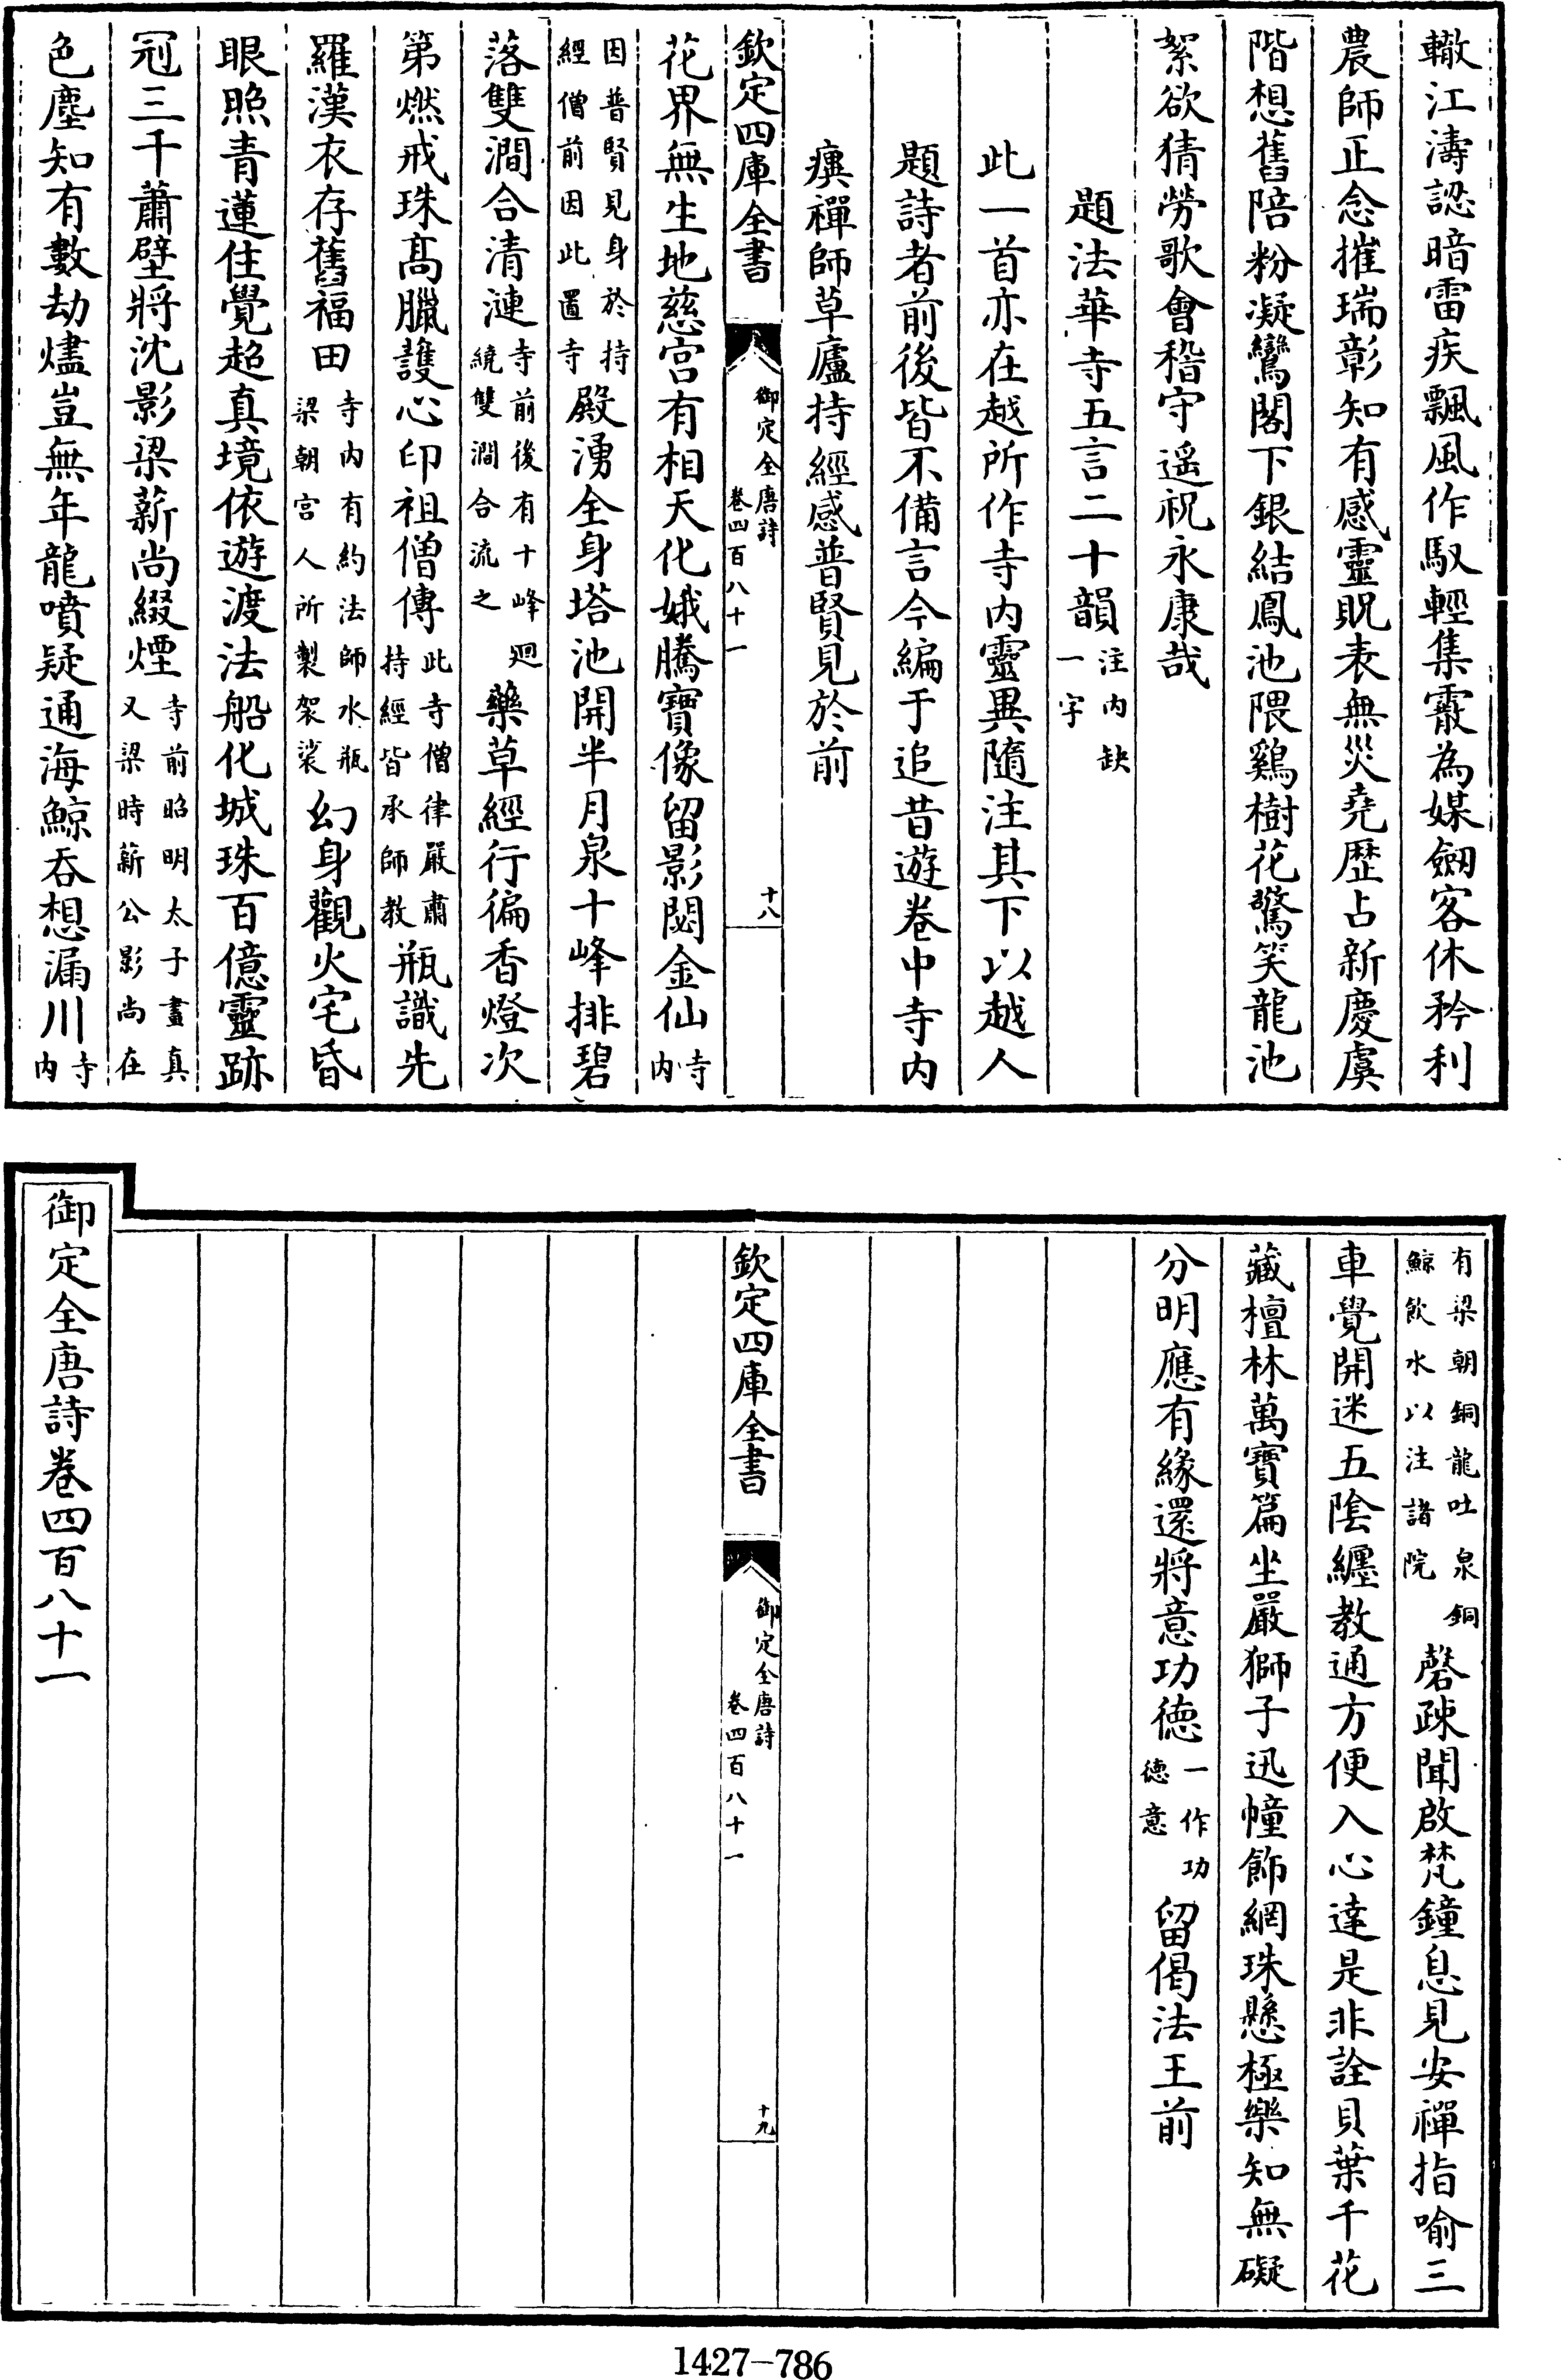 轍江濤認暗雷疾飄風作馭輕集霰為媒劒客休矜利
農師正念摧瑞彰知有感靈貺表無災堯歴占新慶虞
階想舊陪粉凝鸞閣下銀結鳳池隈鷄樹花驚笑龍池
絮欲猜勞歌會稽守遥祝永康哉
題法華寺五言二十韻注内缺一字
此一首亦在越所作寺内靈異隨注其下以越人
題詩者前後皆不備言今編于追昔遊卷中寺内
㾮禪師草廬持經感普賢見於前
欽定四庫全書
御定全唐詩
卷四百八十一
十八
花界無生地慈宫有相天化娥騰寶像留影閟金仙寺内
因普賢見身於持經僧前因此置寺殿湧全身塔池開半月泉十峰排碧
落雙澗合清漣寺前後有十峰廻繞雙澗合流之藥草經行徧香燈次
第燃戒珠高臘護心印祖僧傳此寺僧律嚴肅持經皆承師教瓶識先
羅漢衣存舊福田寺内有約法師水瓶梁朝宫人所製袈裟幻身觀火宅昏
眼照青蓮住覺超真境依遊渡法船化城珠百億靈跡
冠三千蕭壁將沈影梁薪尚綴煙寺前昭明太子畫真又梁時薪公影尚在
色塵知有數劫燼豈無年龍噴疑通海鯨吞想漏川寺内
有梁朝銅龍吐泉銅鯨飲水以注諸院磬疎聞啟梵鐘息見安禪指喻三
車覺開迷五陰纏教通方便入心達是非詮貝葉千花
藏檀林萬寶篇坐嚴獅子迅幢飾網珠懸極樂知無礙
分明應有緣還將意功德一作功德意留偈法王前
欽定四庫全書
御定全唐詩
卷四百八十一
十九
御定全唐詩卷四百八十一
1427-786